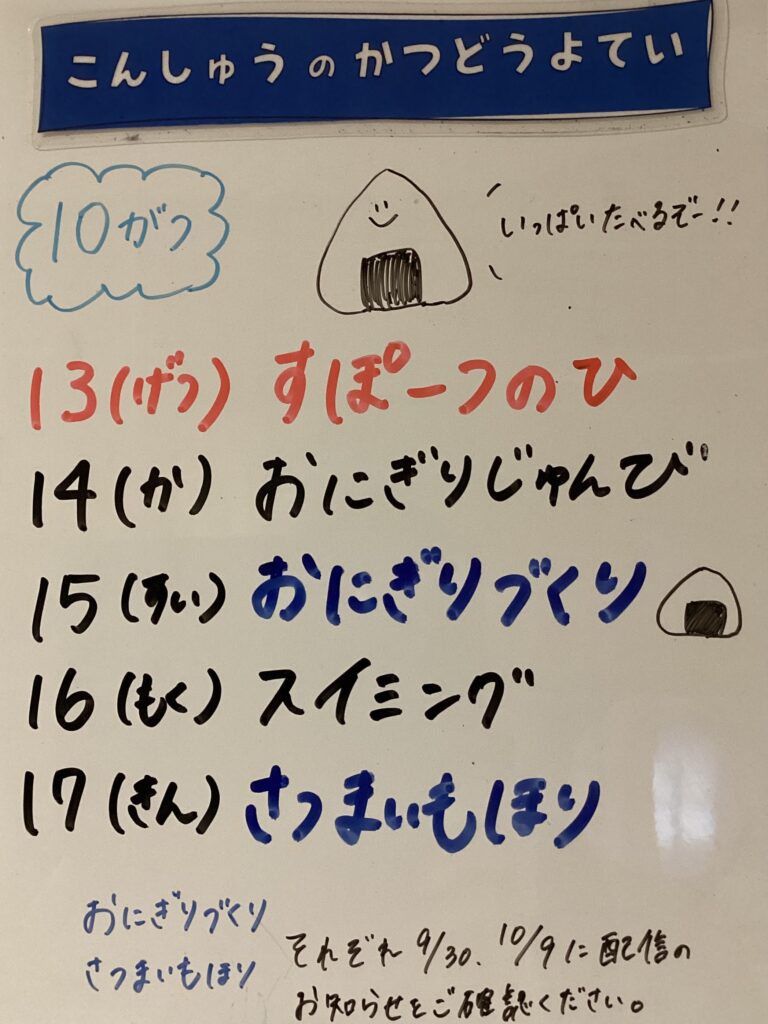 こんしゅうのかつどうよてい
10がつ
いっぱいたべるぞー!!
13(げつ) すぽーつのひ
14(か) おにぎりじゅんび
15(すい) おにぎりづくり
16(もく) スイミング
17(きん) さつまいもほり
おにぎりづくり
さつまいもほり
それぞれ9/30、10/9に配信の
お知らせをご確認ください。